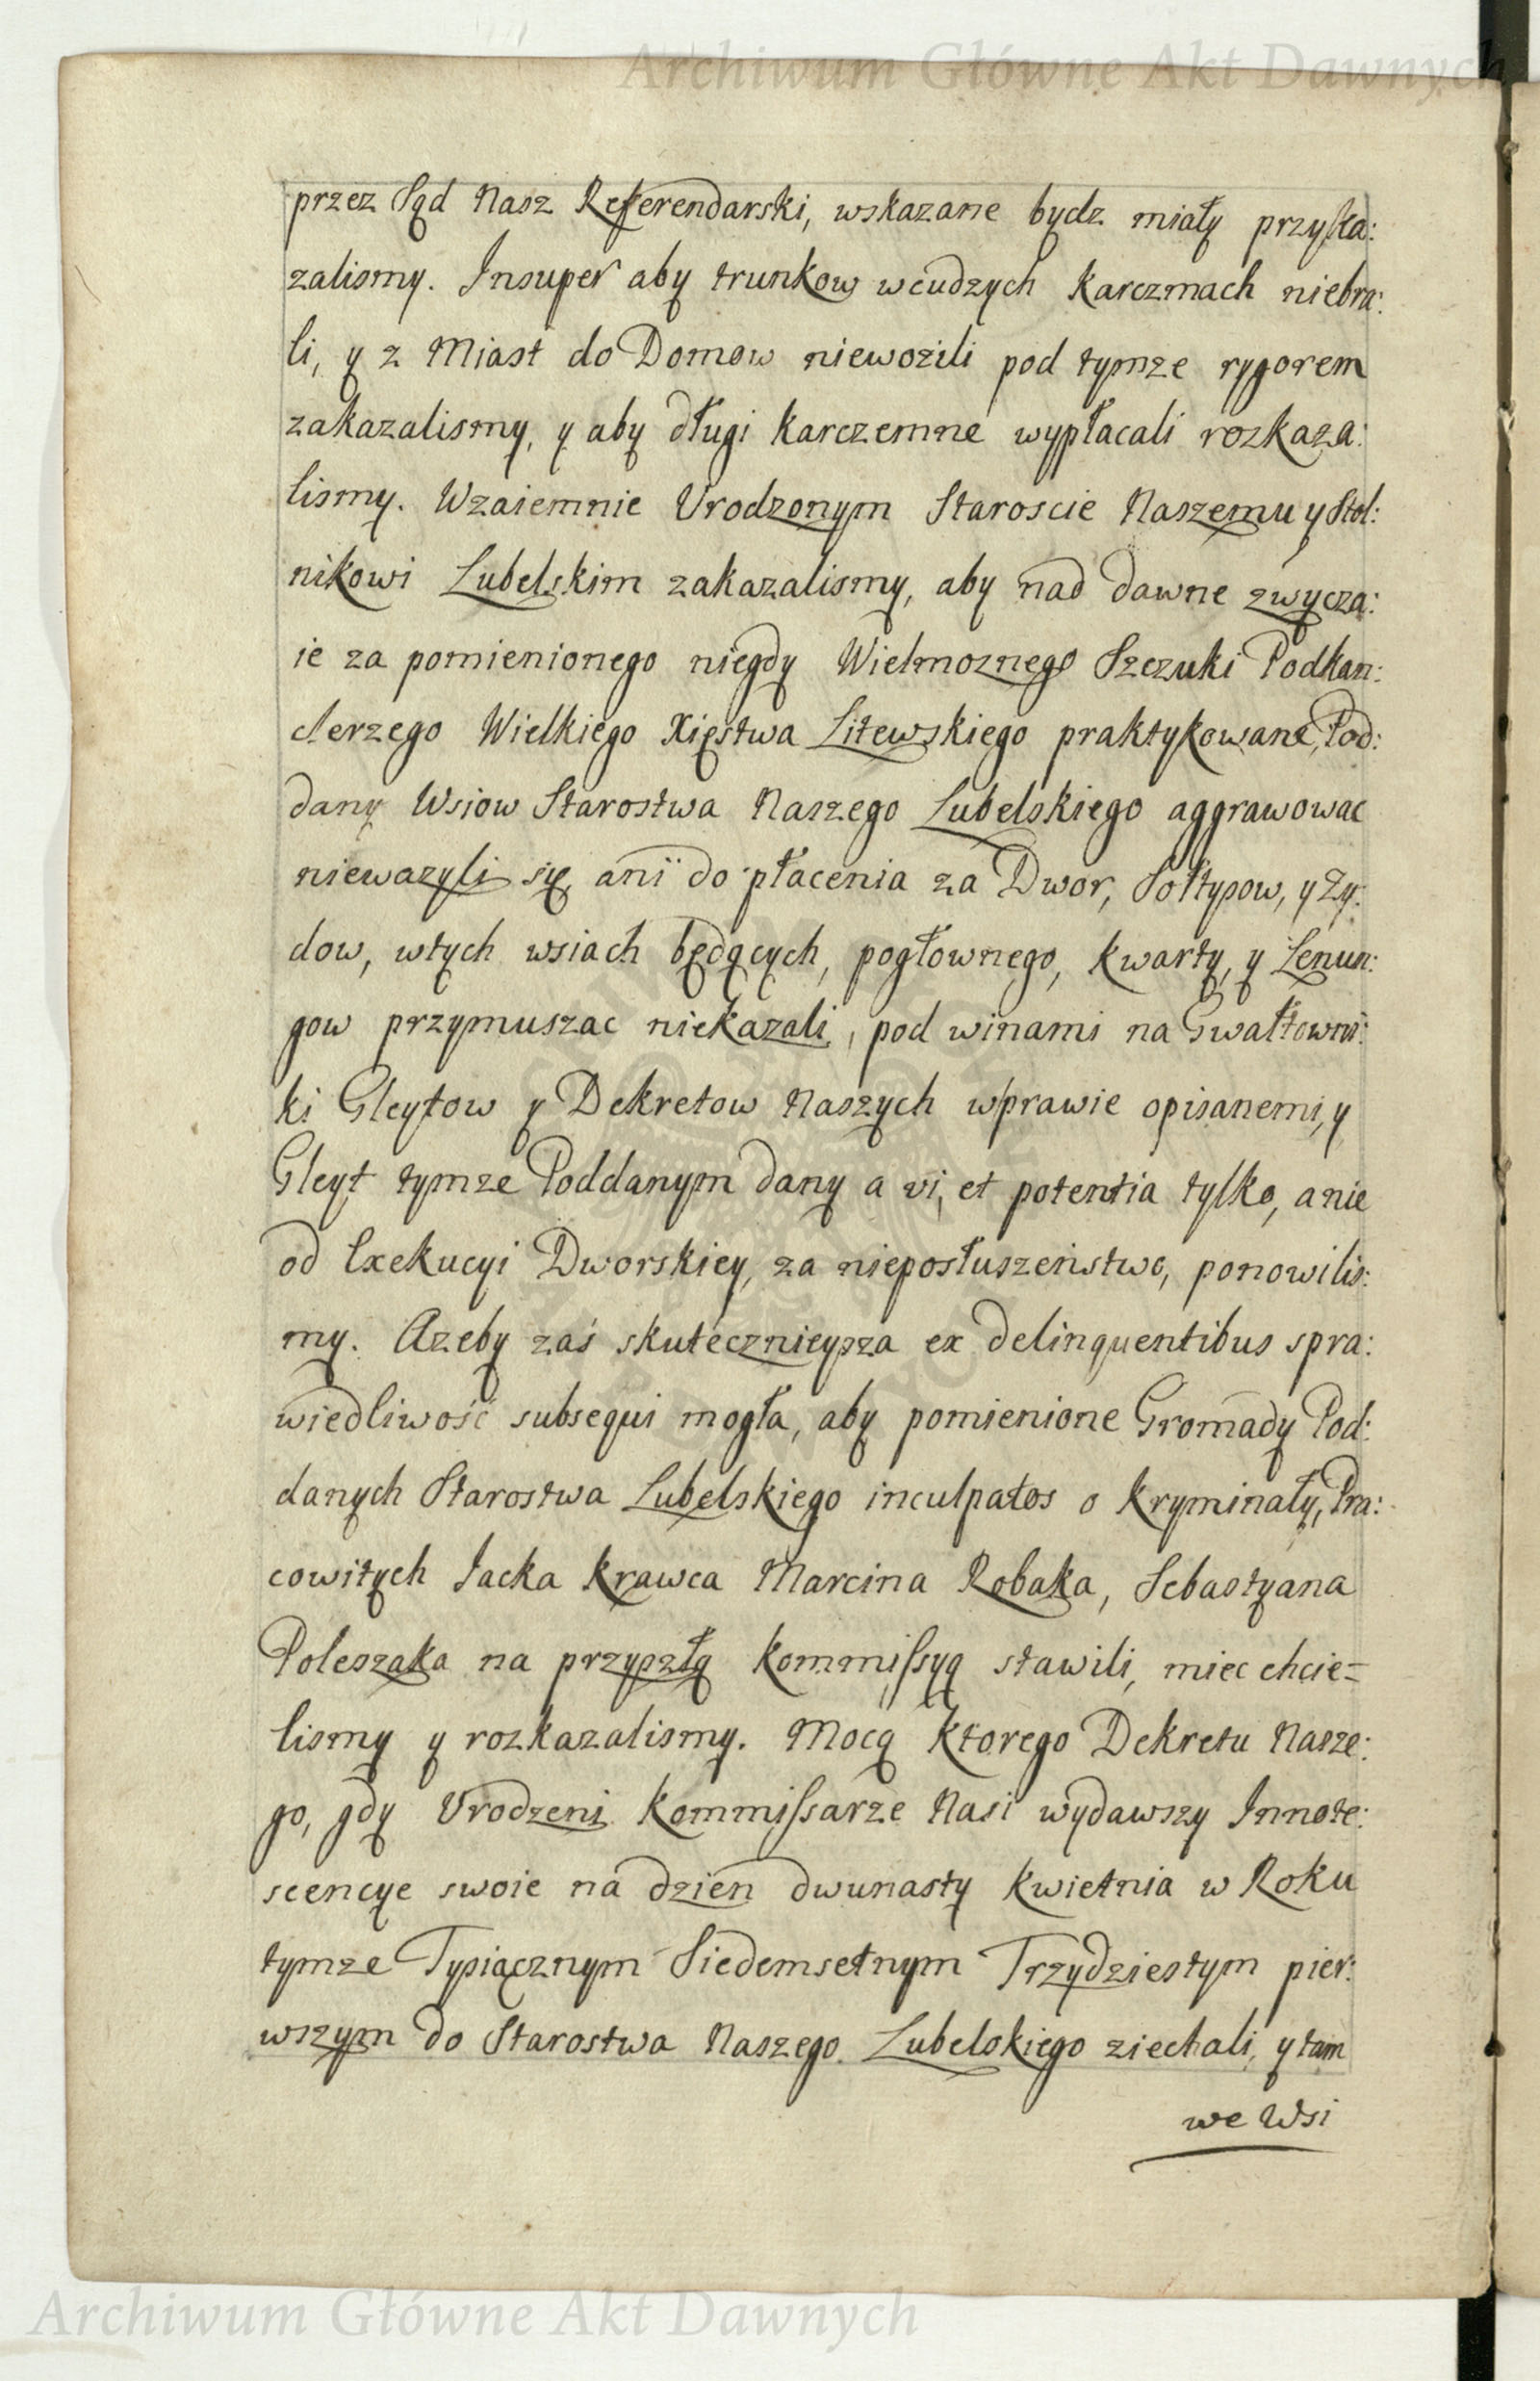 Archiwum Główne Akt Dawnych
przez Sąd Nasz Referendarski, wskazane bydz miały przyka:
zalismy. Insuper aby trunkow wcudzych Karczmach niebra:
li, y z Miast do Domow niewozili pod tymze rygorem
zakazalismy, y aby długi Karczemne wypłacali rozkaza:
lismy. Wzaiemnie Urodzonym Staroscie Naszemu y Stol:
nikowi Lubelskim zakazalismy, aby nad dawne zwycza:
ie za pomienionego niegdy Wielmoznego Szczuki Podkan:
clerzego Wielkiego Xięstwa Litewskiego praktykowane, Pod:
dany Wsiow Starostwa Naszego Lubelskiego aggrawowac
niewazyli się, ani do płacenia za Dwor, Sołtysow, y Zy:
dow, wtych wsiach będących, pogłownego, kwarty, y Lenun:
gow przymuszac niekazali, pod winami na Gwałtowni:
ki Gleytow y Dekretow Naszych wprawie opisanemi, y
Gleyt tymze Poddanym dany a vi, et potentia tylko, anie
od Exekucyi Dworskiey, za nieposłuszeństwo, ponowilis:
my. Azeby zaś skutecznieysza ex delinquentibus spra:
wiedliwość subsequi mogła, aby pomienione Gromady Pod:
danych Starostwa Lubelskiego inculpatos o kryminały, Pra:
cowitych Jacka Krawca Marcina Robaka, Sebastyana
Poleszaka na przyszłą Kommissyą stawili, miec chcie=
lismy y rozkazalismy. Mocą Ktorego Dekretu Nasze:
go, gdy Urodzeni Kommissarze Nasi wydawszy Innote:
scencye swoie na dzien dwunasty kwietnia w Roku
tymze Tysiącznym Siedemsetnym Trzydziestym pier:
wszym do Starostwa Naszego Lubelskiego ziechali, y tam
we Wsi
Archiwum Główne Akt Dawnych